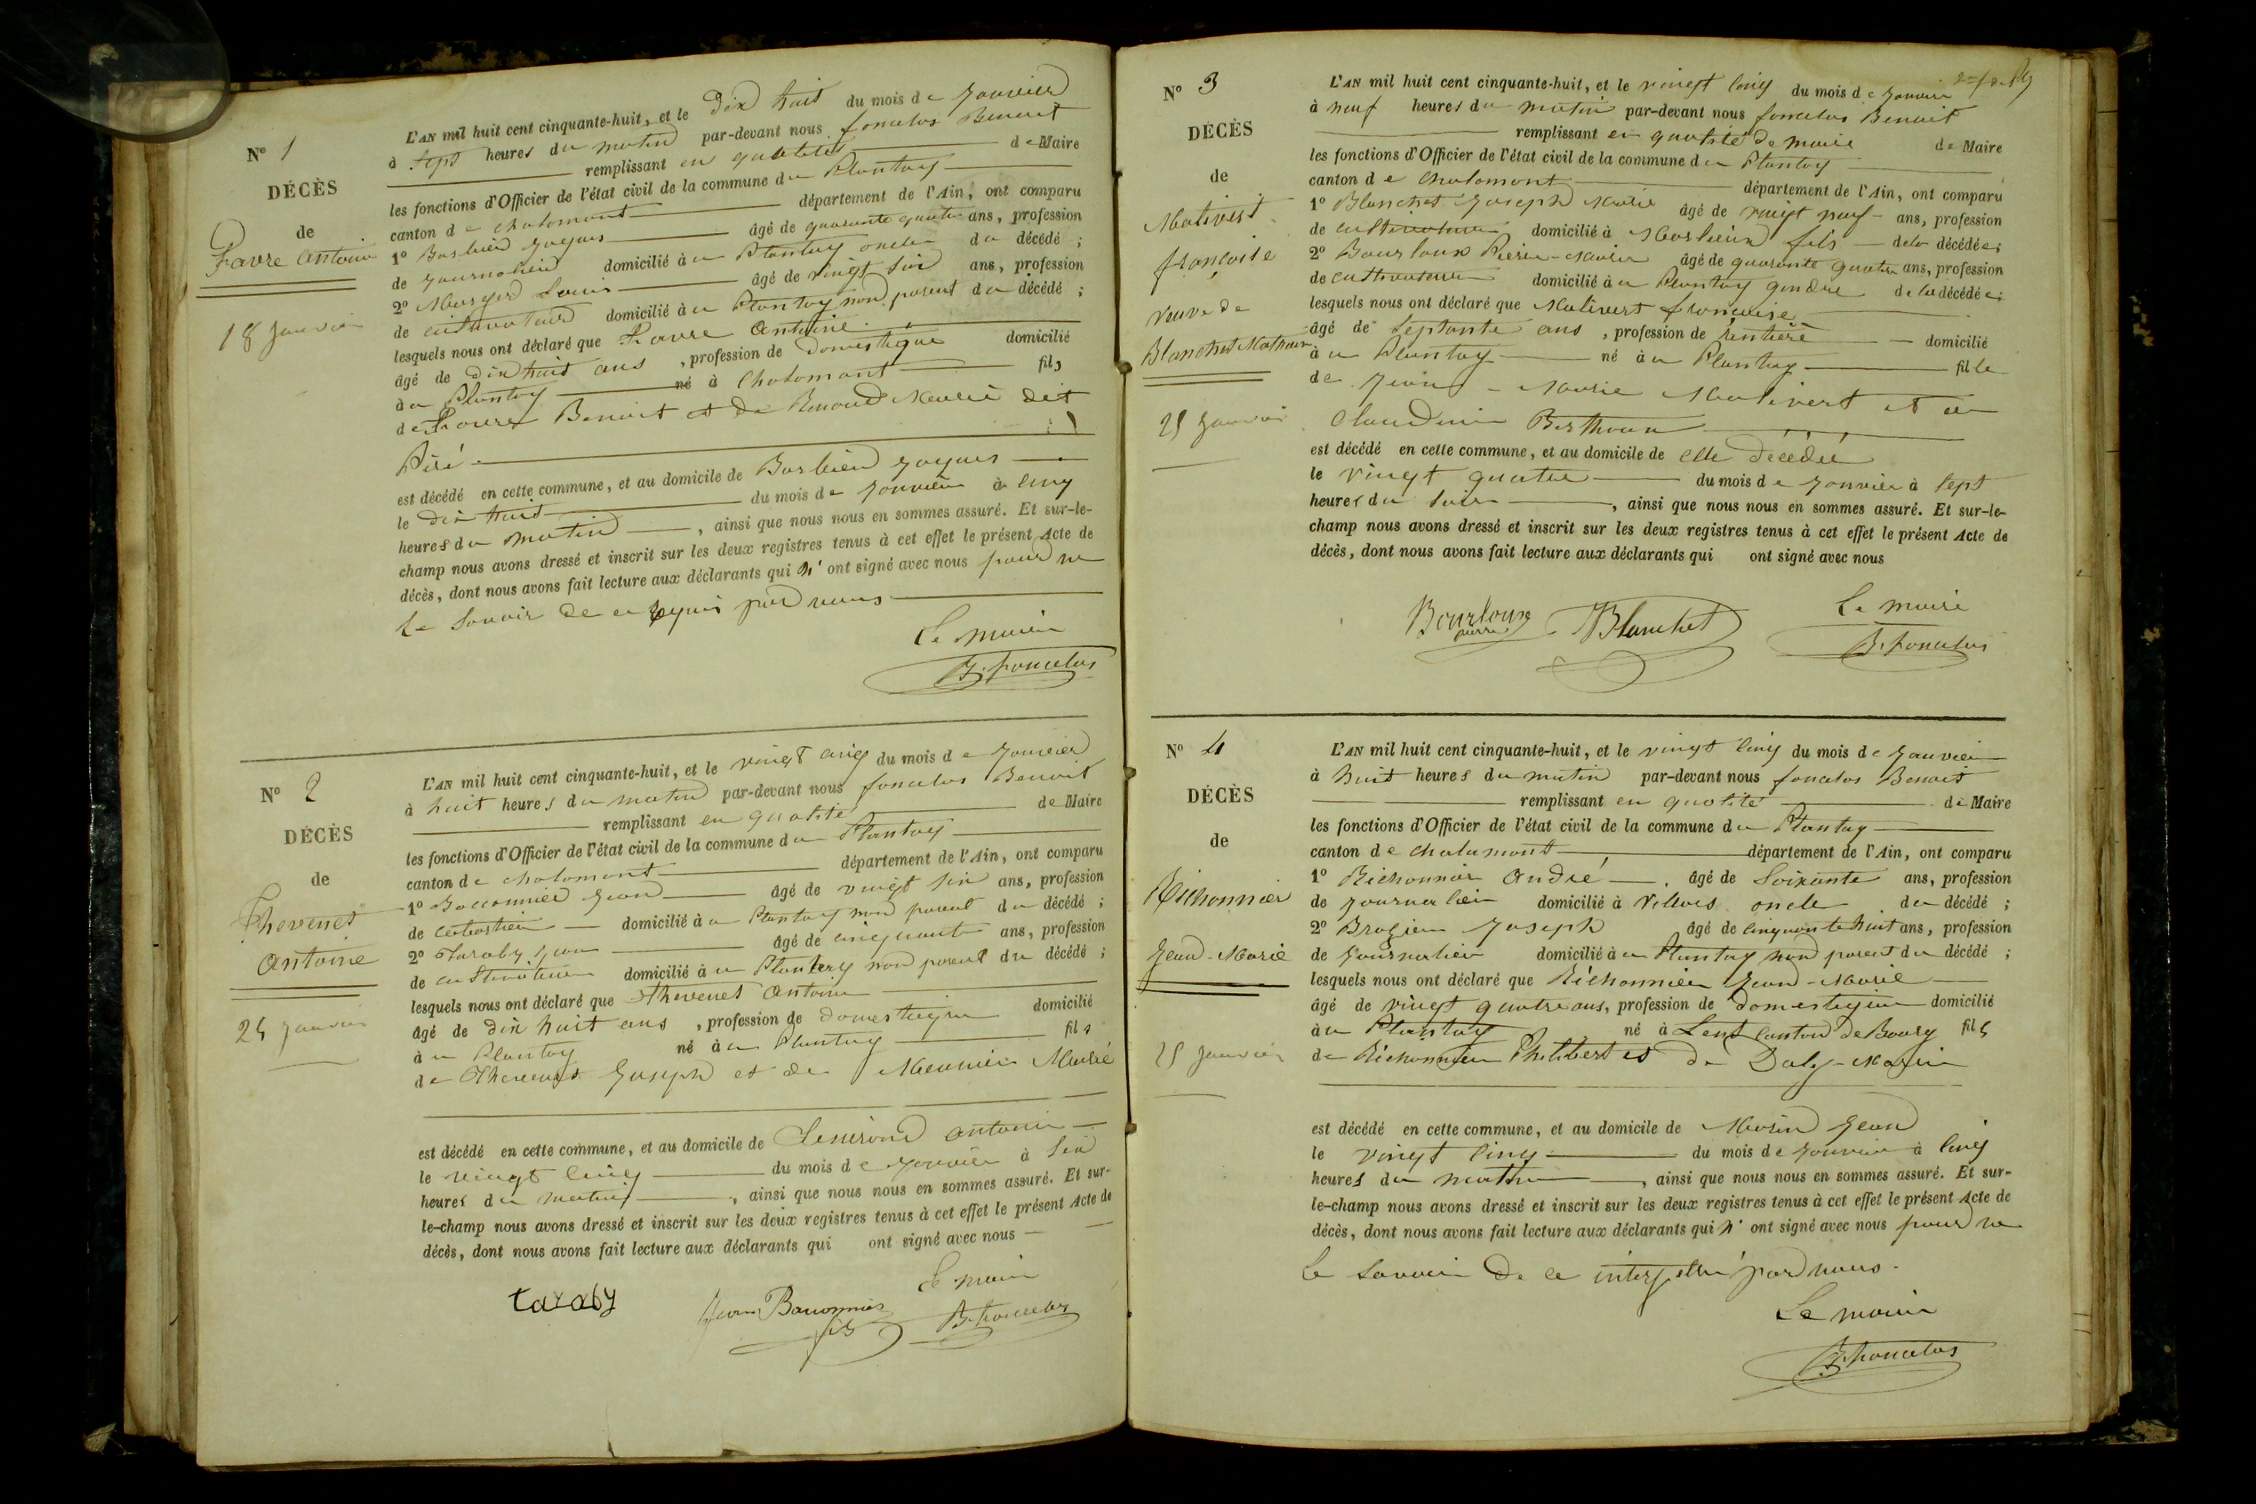 N° 1
DÉCÈS
de
Favre Antoine
18 Janvier
L'AN mil huit cent cinquante-huit, et le Dix huit du mois de Janvier
à sept heures du matin par-devant nous foncelas Benoit
remplissant en qualité de Maire
les fonctions d'Officier de l'état civil de la commune du Plantay
canton de chalamont département de l'Ain, ont comparu
1° Barbier Jaques âgé de quarante quatre ans, profession
de Journalier domicilié à u Plantay oncle du décédé ;
2° Louis âgé de vingt six ans, profession
de cultivateur domicilié à u Plantay non parent du décédé ;
lesquels nous ont déclaré que Favre Antoine
âgé de dix huit ans , profession de Domestique domicilié
à u Plantay né à Chalamont fils
de Favre Benoit et de Renoud Marie dit
est décédé en cette commune, et au domicile de Barbier Jaques
le dix huit du mois de Janvier à cinq
heures du matin , ainsi que nous nous en sommes assuré. Et sur-le-
champ nous avons dressé et inscrit sur les deux registres tenus à cet effet le présent Acte de
décès, dont nous avons fait lecture aux déclarants qui n' ont signé avec nous pour ne
le savoir de ce requis par nous
Le maire
B. foncelas
N° 2
DÉCÈS
de
Thevenet
Antoine
25 Janvier
L'AN mil huit cent cinquante-huit, et le vingt cinq du mois de Janvier
à huit heures du matin par-devant nous foncelas Benoit
remplissant en qualité de Maire
les fonctions d'Officier de l'état civil de la commune du Plantay
canton de chalamont département de l'Ain, ont comparu
1° Baconnier Jean âgé de vingt six ans, profession
de domicilié à u Plantay non parent du décédé ;
2° Taraby Jean âgé de cinquante ans, profession
de cultivateur domicilié à u Plantay non parent du décédé ;
lesquels nous ont déclaré que Thevenet Antoine
âgé de dix huit ans , profession de domestique domicilié
à u Plantay né à u Plantay fils
de Thevenet Joseph et de Meunier Marie
est décédé en cette commune, et au domicile de Antoine
le vingt cinq du mois de Janvier à six
heures du matin , ainsi que nous nous en sommes assuré. Et sur-
le-champ nous avons dressé et inscrit sur les deux registres tenus à cet effet le présent Acte de
décès, dont nous avons fait lecture aux déclarants qui ont signé avec nous
Le maire
taraby Jean Baconnier B. foncelas
N° 3
DÉCÈS
de
Mativert
françoise
veuve de
Blanchet Mathieu
25 Janvier
L'AN mil huit cent cinquante-huit, et le vingt cinq du mois de Janvier
à neuf heures du matin par-devant nous foncelas Benoit
remplissant en qualité de maire de Maire
les fonctions d'Officier de l'état civil de la commune du Plantay
canton de chalamont département de l'Ain, ont comparu
1° Blanchet Joseph Marie âgé de vingt neuf ans, profession
de cultivateur domicilié à Marlieux fils de la décédée ;
2° Bourloux Pierre-Marie âgé de quarante quatre ans, profession
de cultivateur domicilié à u Plantay gendre de la décédée ;
lesquels nous ont déclaré que Mativert françoise
âgé de septante ans , profession de rentière domicilié
à u Plantay né à u Plantay fille
de Jean - Marie Mativert et de
Claudine Berthoux
est décédé en cette commune, et au domicile de elle décédée
le vingt quatre du mois de Janvier à sept
heures du soir , ainsi que nous nous en sommes assuré. Et sur-le-
champ nous avons dressé et inscrit sur les deux registres tenus à cet effet le présent Acte de
décès, dont nous avons fait lecture aux déclarants qui ont signé avec nous
Le maire
Bourloux pierre Blanchet B. foncelas
N° 4
DÉCÈS
de
Richonnier
Jean-Marie
25 Janvier
L'AN mil huit cent cinquante-huit, et le vingt cinq du mois de Janvier
à huit heures du matin par-devant nous foncelas Benoit
remplissant en qualité de Maire
les fonctions d'Officier de l'état civil de la commune du Plantay
canton de chalamont département de l'Ain, ont comparu
1° Richonnier André âgé de soixante ans, profession
de journalier domicilié à Villars oncle du décédé ;
2° Brazier Joseph âgé de cinquante huit ans, profession
de Journalier domicilié à u Plantay non parent du décédé ;
lesquels nous ont déclaré que Richonnier Jean-Marie
âgé de vingt quatre ans, profession de domestique domicilié
à u Plantay né à Lent canton de Bourg fils
de Richonnier Philibert et de Daly-Marie
est décédé en cette commune, et au domicile de Morin Jean
le vingt cinq du mois de Janvier à cinq
heures du matin , ainsi que nous nous en sommes assuré. Et sur-
le-champ nous avons dressé et inscrit sur les deux registres tenus à cet effet le présent Acte de
décès, dont nous avons fait lecture aux déclarants qui n' ont signé avec nous pour ne
le savoir de ce interpellé par nous.
Le maire
B. foncelas